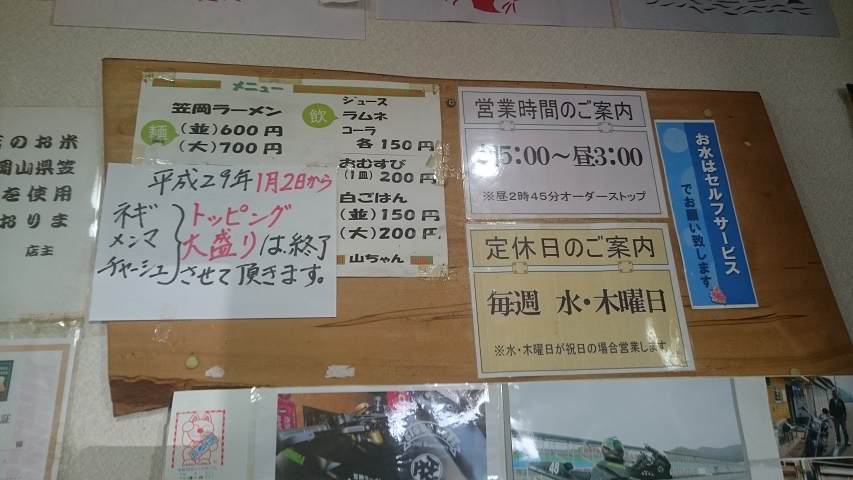 のお米
岡山県笠
を使用
おりま
店主
メニュー
笠岡ラーメン
麺
(並)600円
(大)700円
飲
ジュース
ラムネ
コーラ
各150円
おむすび
(1皿)200円
白ごはん
(並)150円
(大)200円
山ちゃん
平成29年1月2日から
ネギ
メンマ
チャーシュー
トッピング
大盛りは終了
させて頂きます。
営業時間のご案内
5:00〜昼3:00
※昼2時45分オーダーストップ
定休日のご案内
毎週 水・木曜日
※水・木曜日が祝日の場合営業します
お水はセルフサービス
でお願い致します
証
様
48